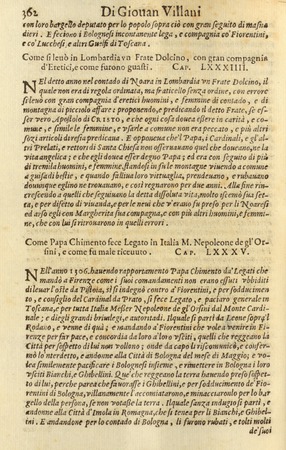 362 Di Giouan Villani
uon loro bargello deputato per lo popolo sopra ciò con gran seguito di masna
dieri. E feciono i Bolognesi incontanente lega, e compagnia co' Fiorentini,
e co' Lucchesi, & altri Guelfi di Toscana.
Come si leuò in Lombardia vn Frate Dolcino, con gran compagnia
d'Eretici, e come furono guasti. CAP. LXXXIIII.
NEl detto anno nel contado di Noara in Lombardia vn Frate Dolcino, il
quale non era di regola ordinata, ma fraticello senza ordine, con errore
si leuò con gran compagnia d'eretici, huomini, e femmine di contado, e di
montagna di piccolo affare; proponendo, e predicando il detto Frate, se esse
re vero Apostolo di CRISTO, e che ogni cosa douea essere in carità, e co-
mune, e simile le femmine, e vsarle comune non era peccato, e più altri
sozzi articoli d'eresia predicaua. E opponeua che 'l Papa, i Cardinali, e gl'al-
tri Prelati, e rettori di Santa Chiesa non osseruauano quel che doueano, ne la
vita vangelica; e che egli douea esser degno Papa: ed era con seguito di più
di tremila huomini, e femmine, standosi in su le montagne viuendo a comune
a guisa di bestie, e quando falliua loro vittuaglia, prendeuano, e rubauano
douunque ne trouauano, e così regnarono per due anni. Alla fine rin-
crescendo a quelli che seguiuano la detta dissoluta vita, molto scemò sua set-
ta, e per difetto di viuanda, e per le neui che v'erano fu preso per li Noaresi
ed arso egli con Margherita sua compagna, e con più altri huomini, e femmi-
ne, che con lui si ritrouarono in quelli errori.
Come Papa Chimento fece Legato in Italia M. Nepoleone de gl'Or-
sini, e come fu male riceuuto. CAP. LXXXV.
NEll'anno 1306. hauendo rapportamento Papa Chimento da' Legati che
mandò a Firenze come i suoi comandamenti non erano essuti vbbiditi
di leuar l'oste da Pistoia, si si indegnò contro a' Fiorentini, e per sodduci men
to, e consiglio del Cardinal da Prato, si fece Legato, e paciaro generale in
Toscana, e per tutta Italia Messer Nepoleone de gl'Orsini dal Monte Cardi-
nale; e diegli grandi breuilegi, e autoritadi. Il quale si partì da Leone sopra 'l
Rodano, e venne di quà; e mandando a' Fiorentini che volea venire in Firen-
ze per far pace, e concordia da loro a' loro vsciti, quelli che reggeano la
Città per sospetto di lui non vollono; onde da capo li riscomunicò, e confer-
mò lo nterdetto, e andonne alla Città di Bologna del mese di Maggio; e vo-
lea similemente pacificare i Bolognesi insieme, e rimettere in Bologna i loro
vsciti Bianchi, e Ghibellini. Que' che reggeano la terra hauendo preso sospet-
to di lui, perche parea che fauorasse i Ghibellini, e per sodducimento de' Fio-
rentini di Bologna, villanamente l'accomiatarono, e minacciaronlo per lo bar-
gello della persona, se non votasse la terra. Il quale senza indugio si partì, e
andonne alla Città d'Imola in Romagna, che si tenea per li Bianchi, e Ghibel-
lini. E andandone per lo contado di Bologna, li furono rubati, e tolti molti
de suoi